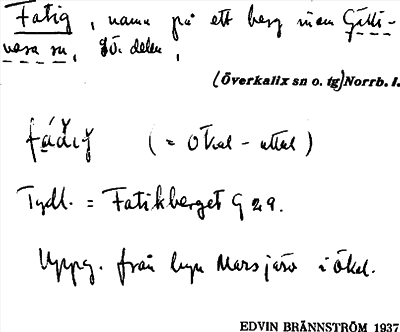 Fatig, namn på ett berg inom Gälli-
vara sn, sö. delen,
(Överkalix sn o. tg) Norrb. l.
(= Ökal-uttal)
Tydl. = Fatikberget G 29.
Uppg. från byn Marsjärv i Ökal.
EDVIN BRÄNNSTRÖM 1937